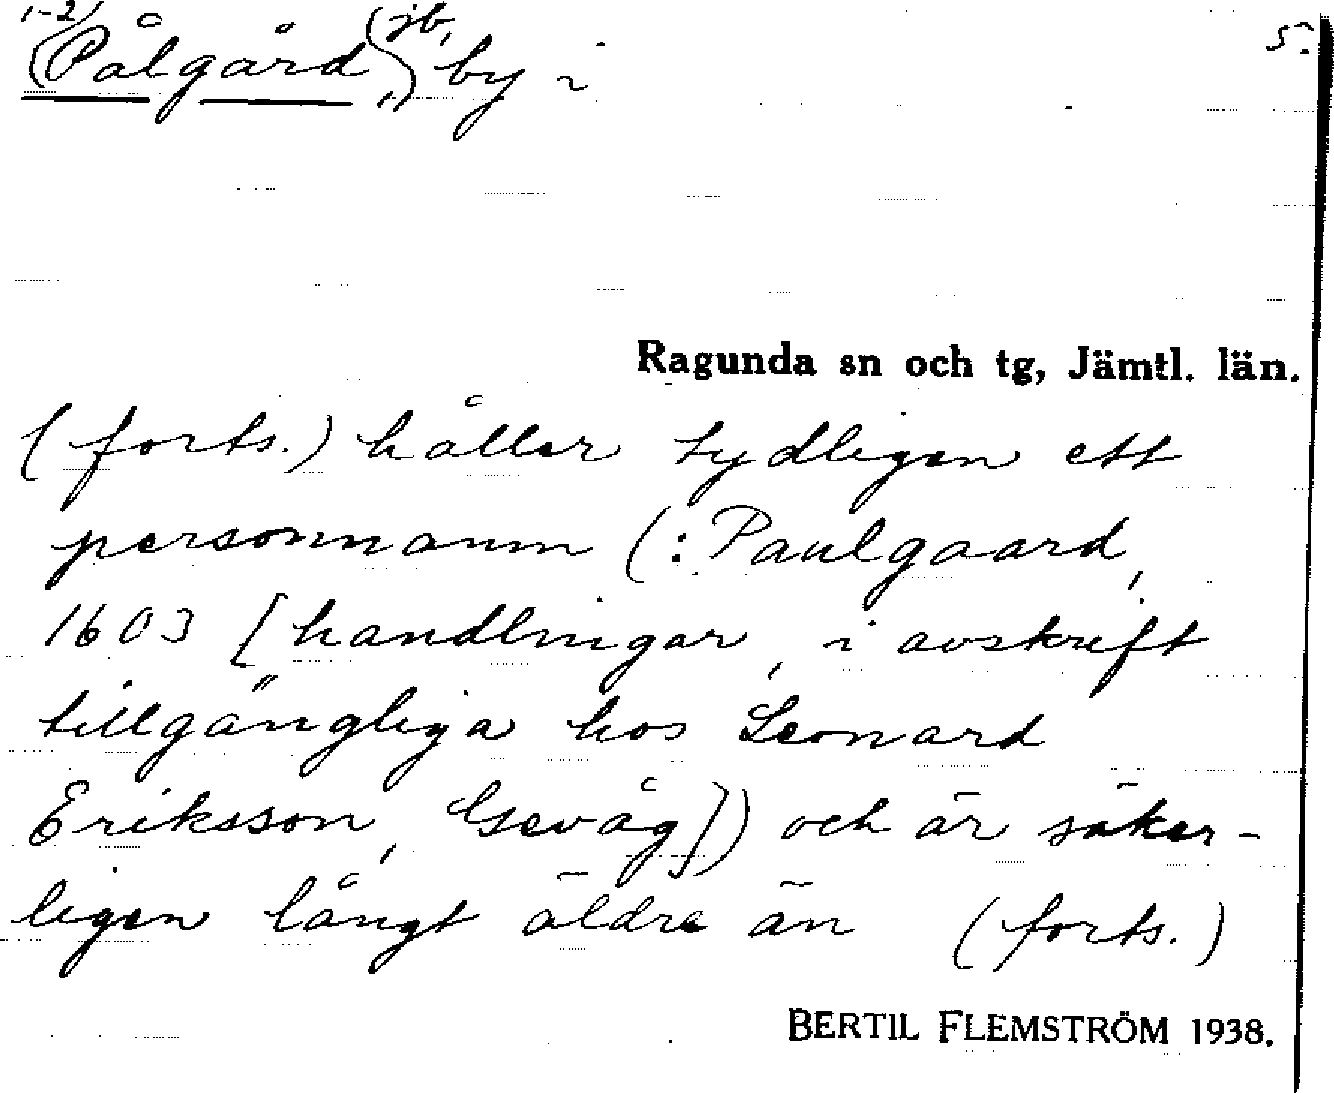 1-2) (jb, 5.
(Pålgård,) by i
Ragunda sn och tg, Jämtl. län.
(forts.) håller tydligen ett
personnamn (: Paulgaard,
1603 [handlingar, i avskrift
tillgängliga hos Leonard
Eriksson, Gevåg]) och är säker-
ligen långt äldre än (forts.)
BERTIL FLEMSTRÖM 1938.